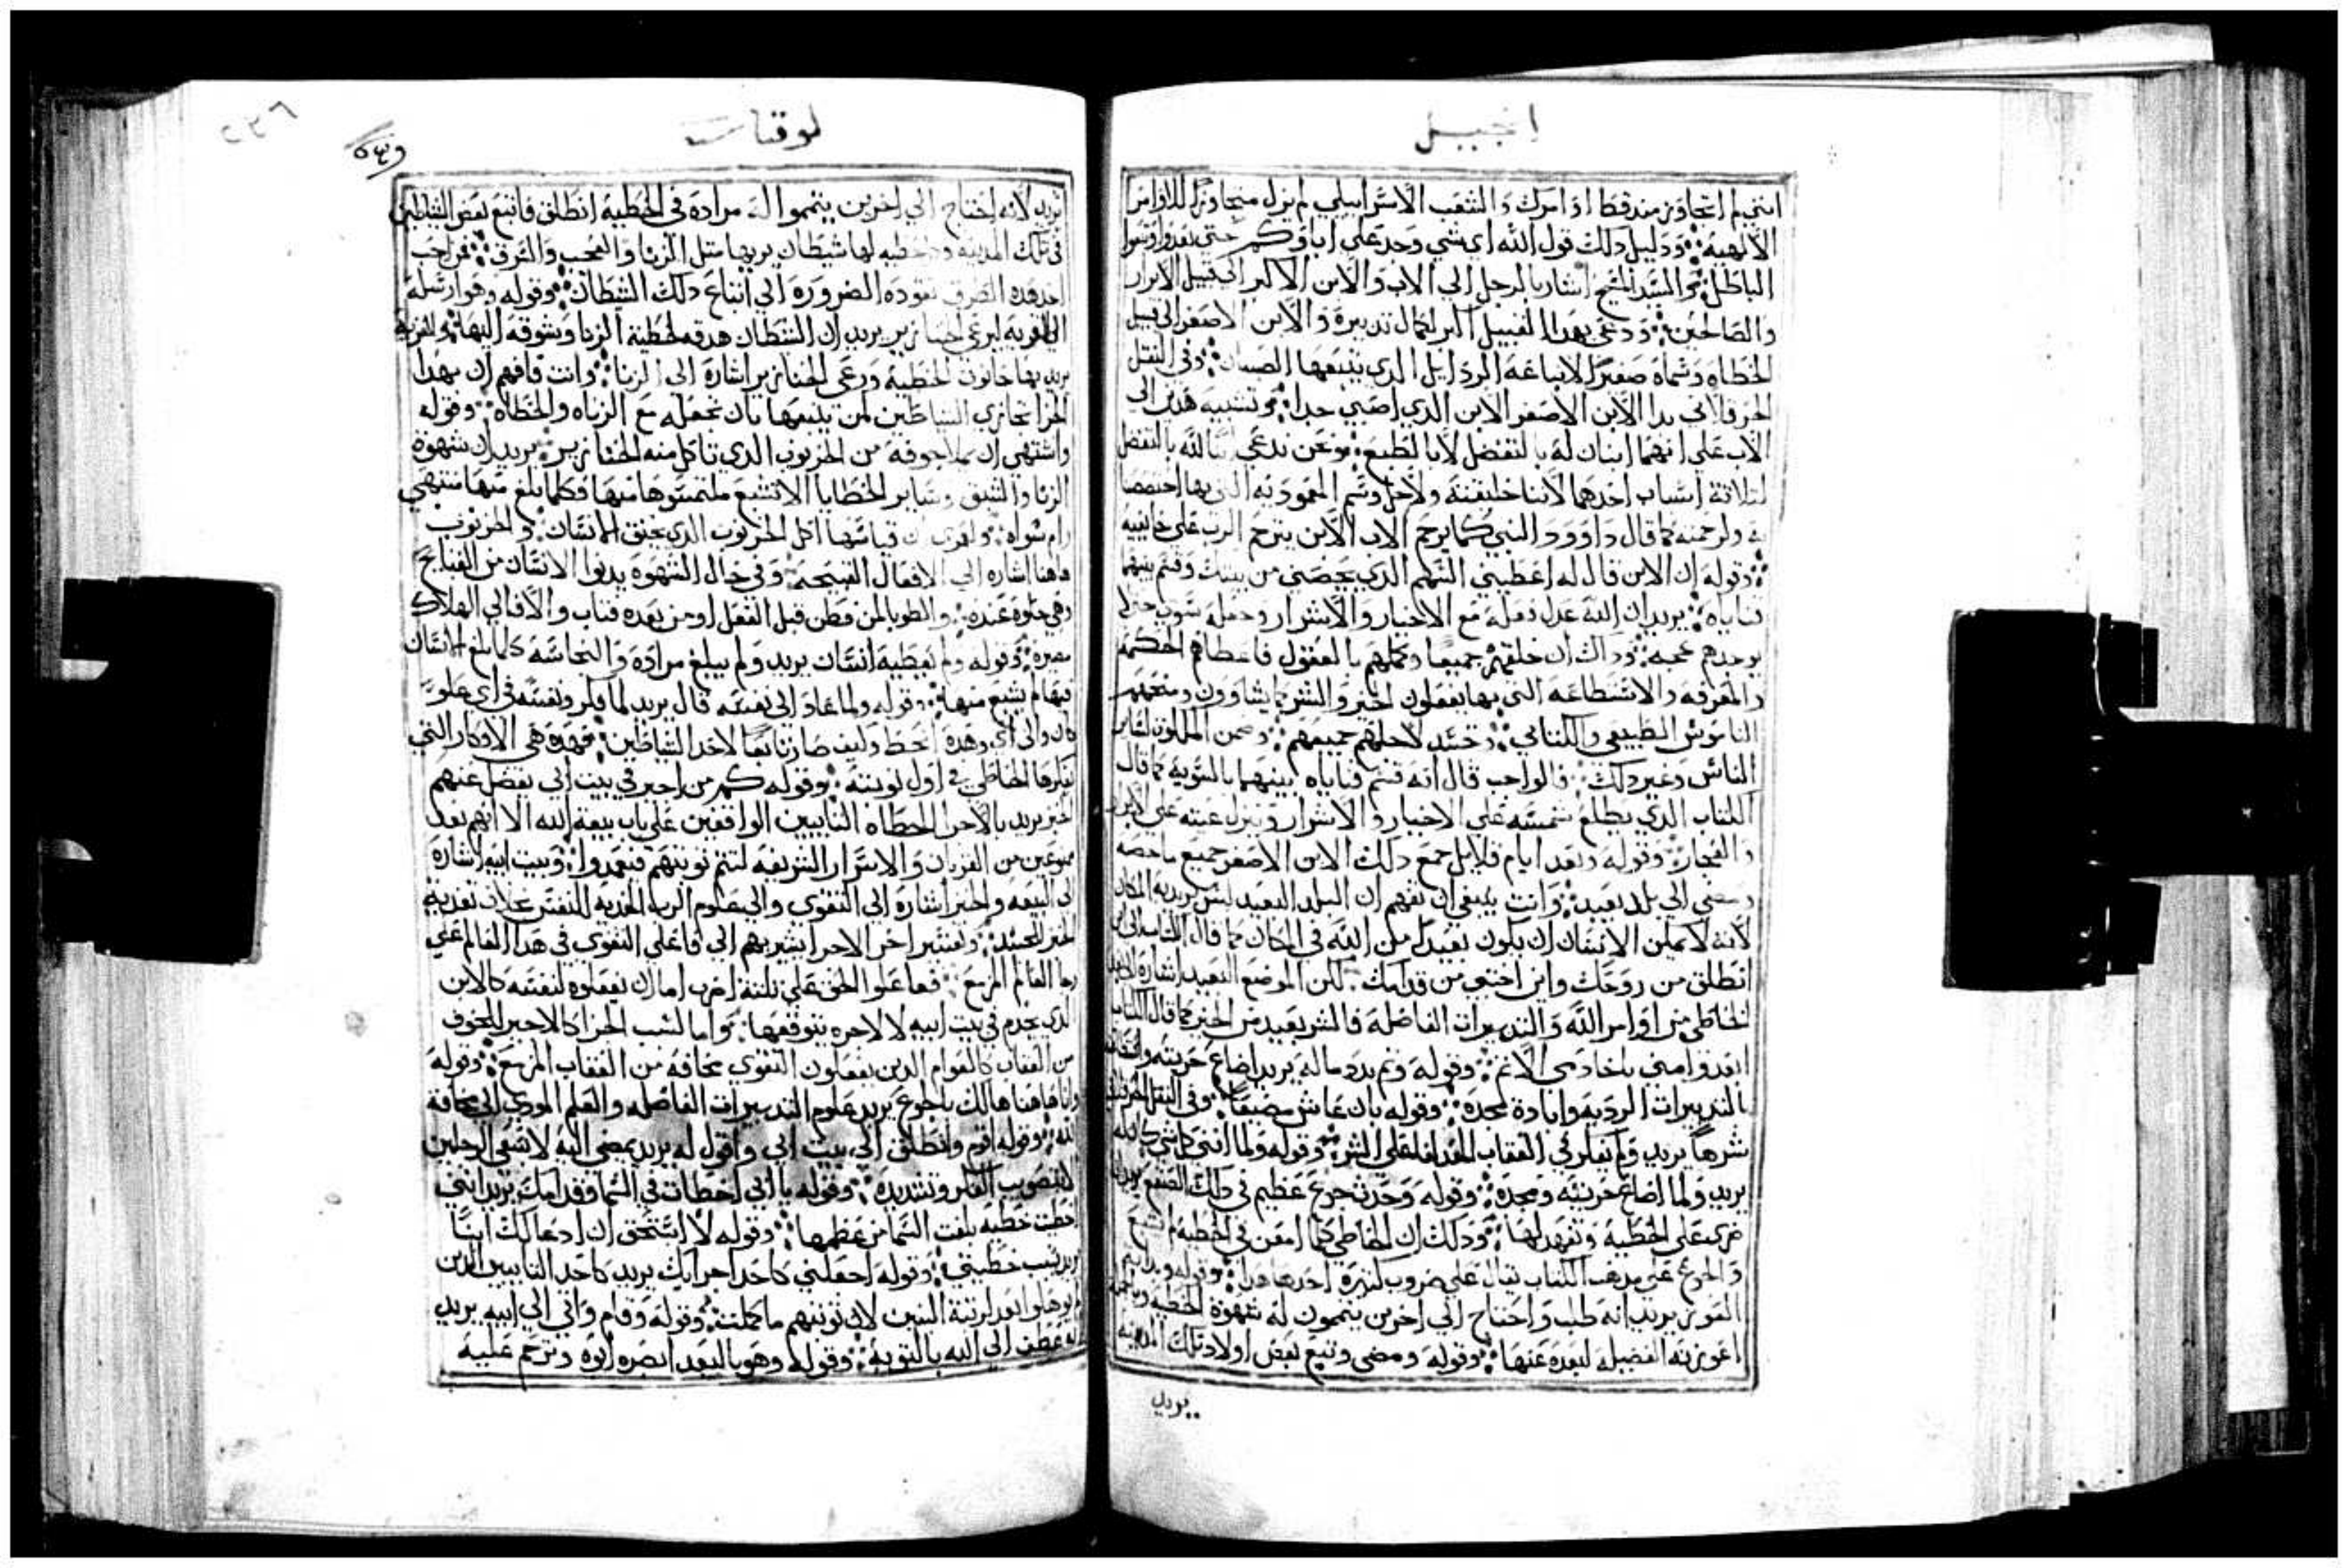 انجيل
انني لم اتجاوز منذ قط اوامرك والشعب الاسراييلي لم يزل متجاوزا للاوامر
الالهيه ودليل ذلك قول الله اي شي وجد علي اباوكم حتي بعدوا وتبعوا
الباطل السيد المسيح اشار بالرجل الي الاب والابن الاكبر الي قبيل الابرار
والصالحين ودعي بهدا القبيل اكبر لكمال تدبيره والابن الاصغر الي قبيل
الخطاه وسماه صغيرا لاتباعه الردايل الدي يتبعها الصبيان وفي النقل
الحرقلاني بدا الابن الاصغر الابن الدي اصبي جدا وتشبيه هدين الي
الاب علي انهما ابنان له بالتفضل لا بالطبع ونحن ندعي ابنا لله بالتفضل
لتلاتة اسباب احدهما لاننا خليقته ولاجل وسم المعموديه التي بها اختصصنا
به ولرحمته كما قال داوود النبي كما يرحم الاب الابن يترحم الرب علي خايفيه
وقوله ان الابن قال له اعطيني السهم الدي يخصني من بيتك وقسم بينهما
قناياه يريد ان الله عدل فعله مع الاخيار والاشرار
وداك ان خلقهم جميعا وكملهم بالعقول فاعطاهم الحكمه
والمعرفه والاستطاعه التي بها يفعلون الخير والشر كما يشاوون ومنحهم
الناموس الطبيعي والكتابي وتجسد لاجلهم جميعهم
الناس وغير دلك فالواجب قال انه قسم قناياه بينهما بالسويه كما قال
الكتاب الدي يطلع شمسه علي الاخيار والاشرار وينزل غيته علي الابرار
والفجار وقوله وبعد ايام قلايل جمع دلك الابن الاصغر جميع ما خصه
ومضي الي بلد بعيد وانت ينبغي ان تفهم ان البلد البعيد ليس يريد به المكان
لانه لا يمكن الانسان ان يكون بعيدا من الله في المكان كما قال الكتاب الي اين
انطلق من روحك واين اختبي من قدامك لكن الموضع البعيد اشارة لابعاد
الخاطي من اوامر الله والتدبيرات الفاضله فالشر بعيد من الخير كما قال الكتاب
ابعدوا مني ياخادمي الاتم وقوله وتم بدد ماله يريد اضاع حريته
بالتدبيرات الرديه وابادة مجده وقوله بان عاش مضيقا وفي النقل
شرها يريد ولم يفكر في العقاب المعد لفاعلي الشر وقوله ولما افني كل شي كان له
يريد ولما اضاع حريته ومجده وقوله وحدت جوع عظيم في دلك الصقع
علي الخطيه ودلك ان الخاطي كلما امعن في الخطيه لم يشبع
والجوع علي مدهب الكتاب يقال علي ضروب كتيره احدها هدا وقوله
العوز يريد انه طلب واحتاج الي اخرين يتممون له شهوة الخطيه
اعوزته الفضيله لبعده عنها وقوله ومضي وتبع بعض اولاد تلك المدينه
يريد
لوقتا
يريد لانه احتاج الي اخرين يتمموا له مراده في الخطية انطلق فاتبع لبعض الشياطين
في تلك المدينه وكل خطيه لها شيطان يربيها متل الزنا والعجب والسرق فمن احب
احد هده الطرق تقوده الضروره الي اتباع دلك الشيطان وقوله وهو ارسله
الي القريه ليرعي الخنازير يريد ان الشيطان هدفه لخطية الزنا وشوقه اليها
يريد بها حانوت الخطيه ورعي الخنازير اشارة الي الزنا وانت فافهم ان بهدا
الجزا تجازي الشياطين لمن يتبعها بان تجعله مع الزناه والخطاه وقوله
واشتهي ان يملا جوفه من الخرنوب الدي تاكل منه الخنازير يريد ان شهوة
الزنا والشبق وساير الخطايا لا تشبع ملتمسوها منها فكلما بلغ منها منتهي
رام سواه ان قياسها اكل الخرنوب الدي يخنق الانسان والخرنوب
هاهنا اشاره الي الافعال القبيحه وفي حال الشهوه يدنوا الانسان من القبايح
وهي حلوة عنده والطوبا لمن فطن قبل الفعل اومن بعده فتاب والا فالي الهلاك
مصيره وقوله ولم يعطيه انسان يريد ولم يبلغ مراده والنجاسه كلما بلغ الانسان
فيها لم يشبع منها وقوله ولما عاد الي نفسه قال يريد لما فكر ونفسه في اي علو
كان والي اي وهدة انحط وكيف صار تابعا لاحد الشياطين فهده هي الافكار التي
يفكرها الخاطي في اول توبته وقوله كم من اجير في بيت ابي يفضل عنهم
الخبز يريد بالاجرا الخطاه التايبين الواقفين علي باب بيعة الله الا انهم بعد
ممنوعين من القربان والاسرار الشريفه لتتم توبتهم فيعمدوا وبيت ابيه اشارة
الي البيعه والخبز اشارة الي التقوي والي علوم الرب المغديه للنفس غلات تغدية
الخبز للجسد وتفسير اخر الاجرا يشير بهم الي فاعلي التقوي في هدا العالم علي
رجا العالم المزمع ففاعلوا الحق علي تلتة اضرب اما ان يفعلوه لنفسه كالابن
الدي يخدم في بيت ابيه لا لاجره يتوقعها واما لسبب الجزا كالاجير للخوف
من العقاب كالقوام الدين يفعلون التقوي مخافة من العقاب المزمع وقوله
وانا هاهنا هالك بالجوع يريد علوم التدبيرات الفاضله والعلم المودي الي مخافة
الله وقوله اقوم وانطلق الي بيت ابي واقول له يريد بمضي اليه لا بسعي الرجلين
لكن بتصويب الفكر وتسديده وقوله يا ابي اخطات في السما وقدامك يريد انني
اخطيت خطيه بلغت السما من عظمها وقوله لا استحق ان ادعا لك ابنا
يريد بسبب خطيتي وقوله اجعلني كاحد اجرايك يريد كاحد التايبين الدين
لم يوهلوا بعد لرتبة البنين لان توبتهم ما كملت وقوله وقام واتي الي ابيه يريد
انه عطف الي الله بالتوبه وقوله وهو بالبعد ابصره ابوه وترحم عليه